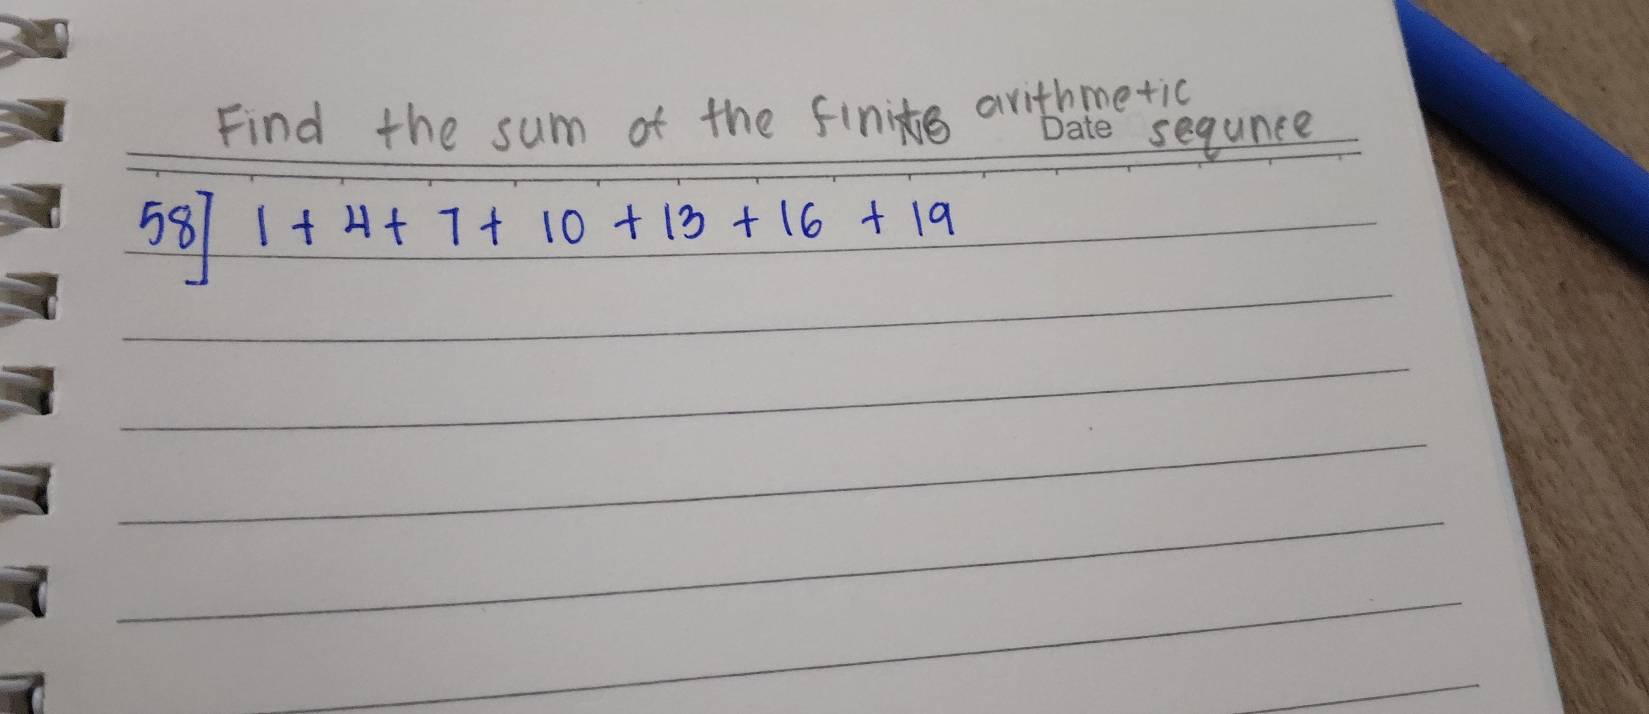 Find the sum of the finite arithmetic sequnce
Date
58] 1 + 4 + 7 + 10 + 13 + 16 + 19